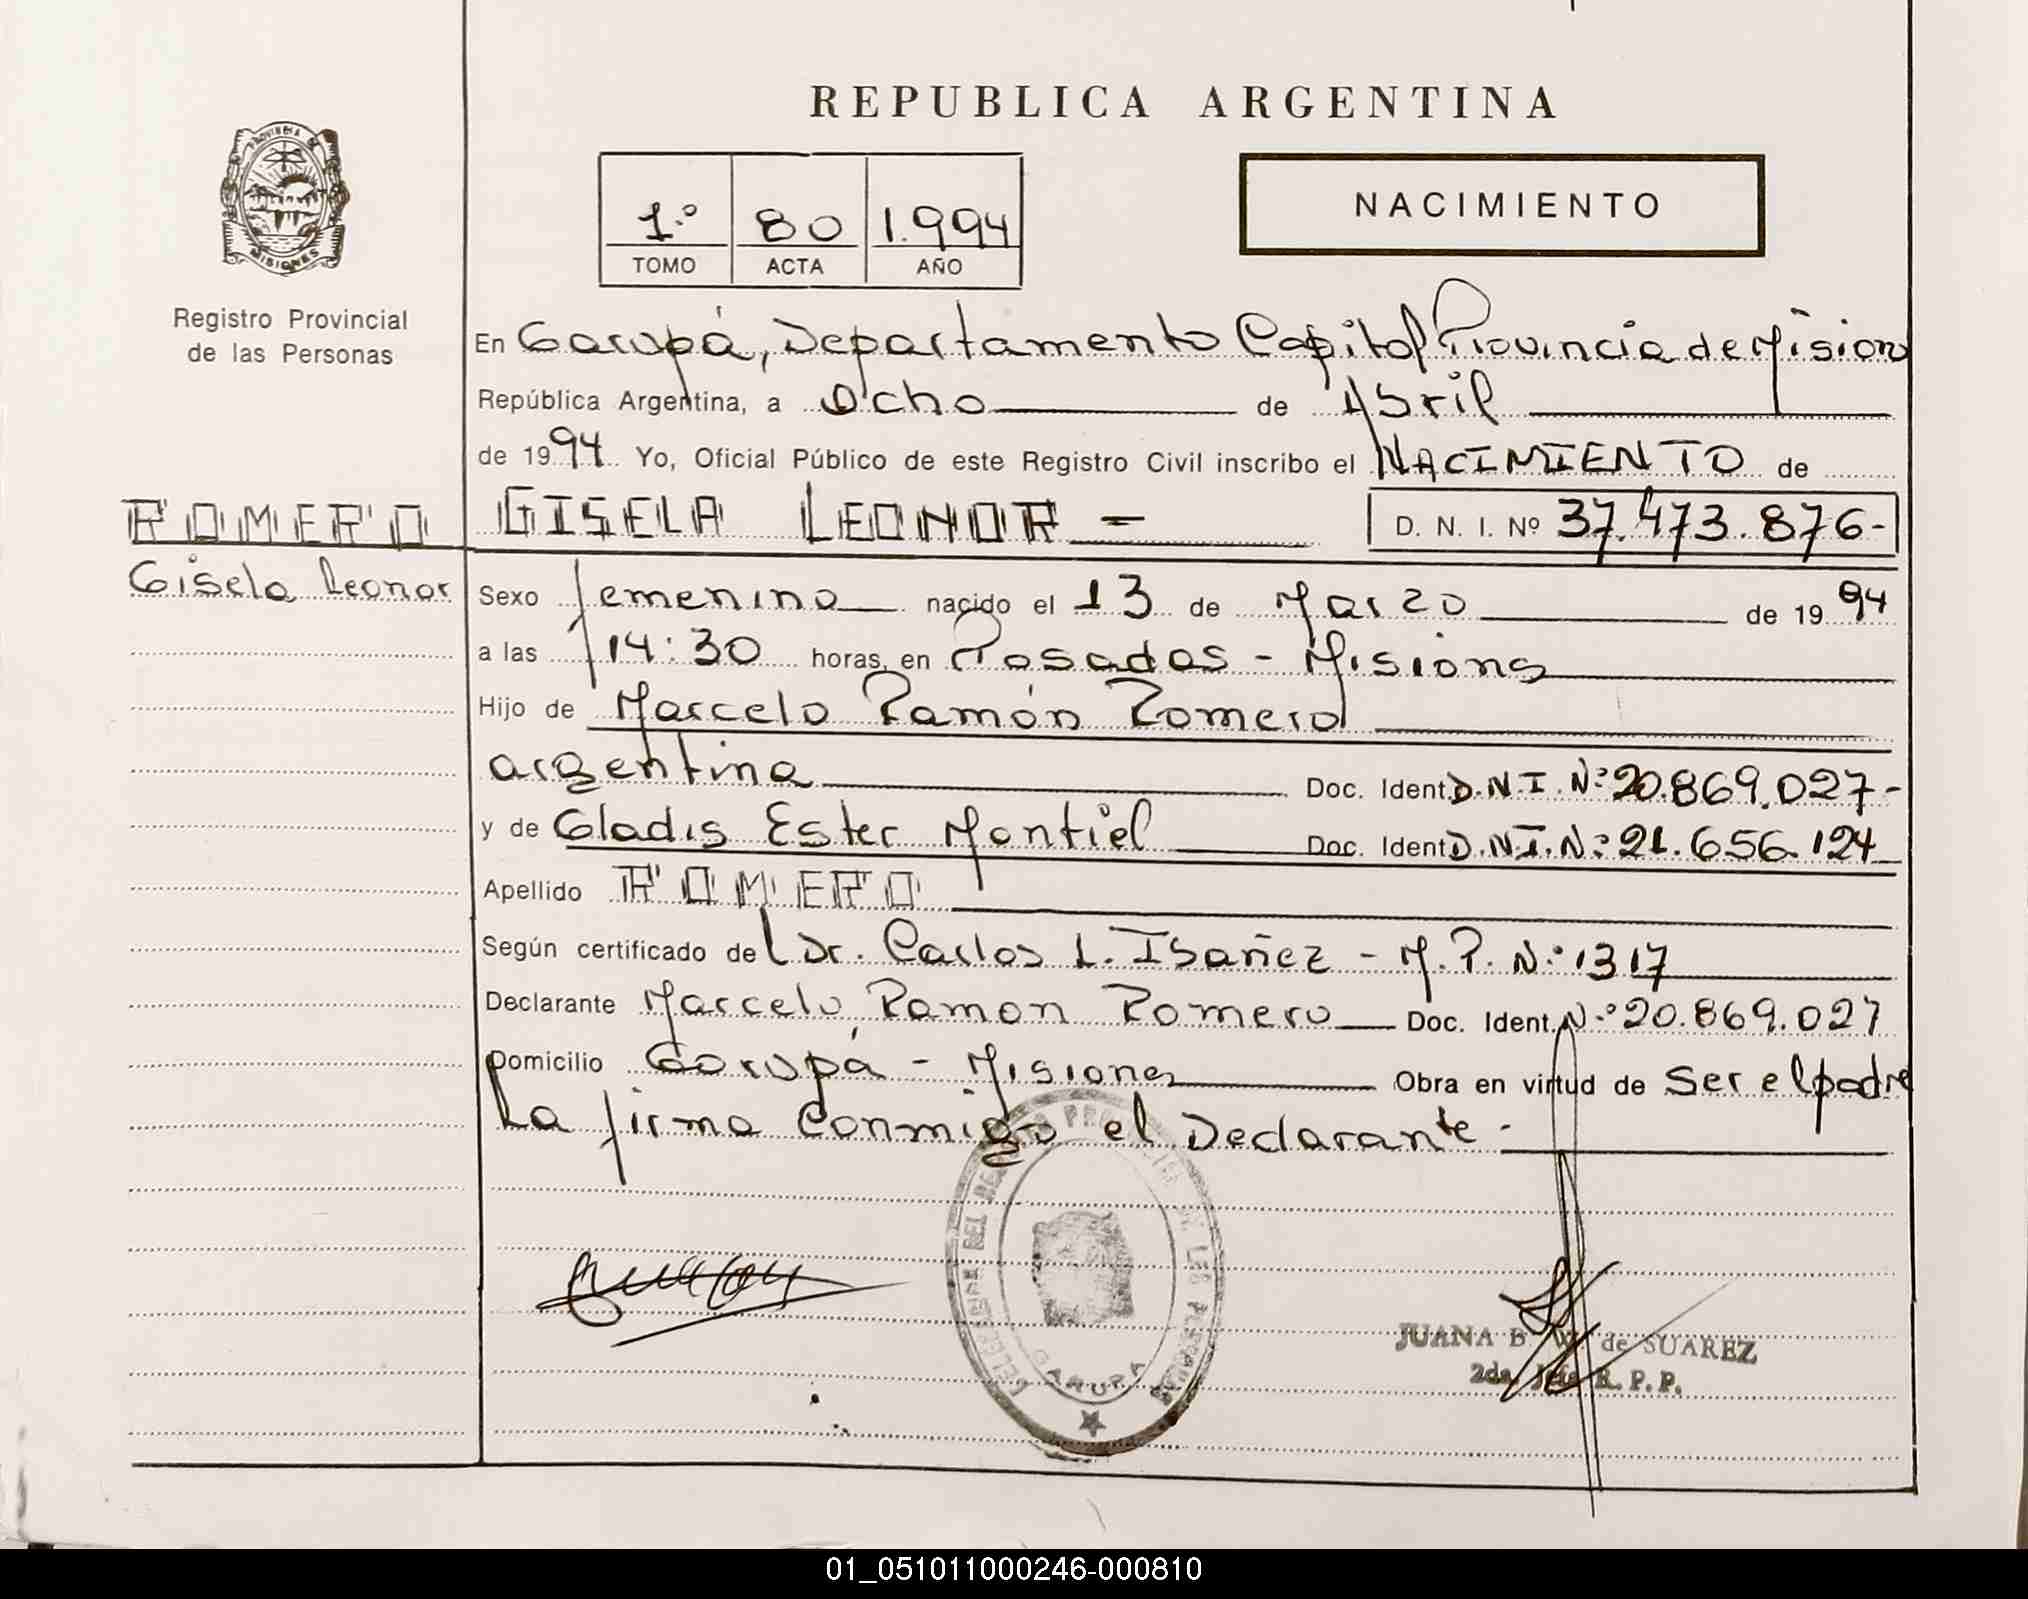 REPUBLICA ARGENTINA
PROVINCIA DE
MISIONES
Registro Provincial
de las Personas
1.º 80 1.994
TOMO ACTA AÑO
NACIMIENTO
En Garupá, Departamento Capital Provincia de Misiones
República Argentina, a Ocho de Abril
de 1994 Yo, Oficial Público de este Registro Civil inscribo el NACIMIENTO de
ROMERO GISELA LEONOR - D. N. I. Nº 37.473.876-
Gisela Leonor
Sexo femenino nacido el 13 de Marzo de 1994
a las 14:30 horas, en Posadas - Misiones
Hijo de Marcelo Ramón Romero
argentina Doc. Ident. D.N.I. Nº 20.869.027-
y de Gladis Ester Montiel Doc. Ident. D.N.I. Nº 21.656.124
Apellido ROMERO
Según certificado del Dr. Carlos L. Ibañez - M.P. Nº 1317
Declarante Marcelo Ramon Romero Doc. Ident. Nº 20.869.027
Domicilio Garupá - Misiones Obra en virtud de Ser el padre
La firma conmigo el Declarante.-
GARUPA
JUANA B. W. de SUAREZ
2da. Jefe R. P. P.
01_051011000246-000810